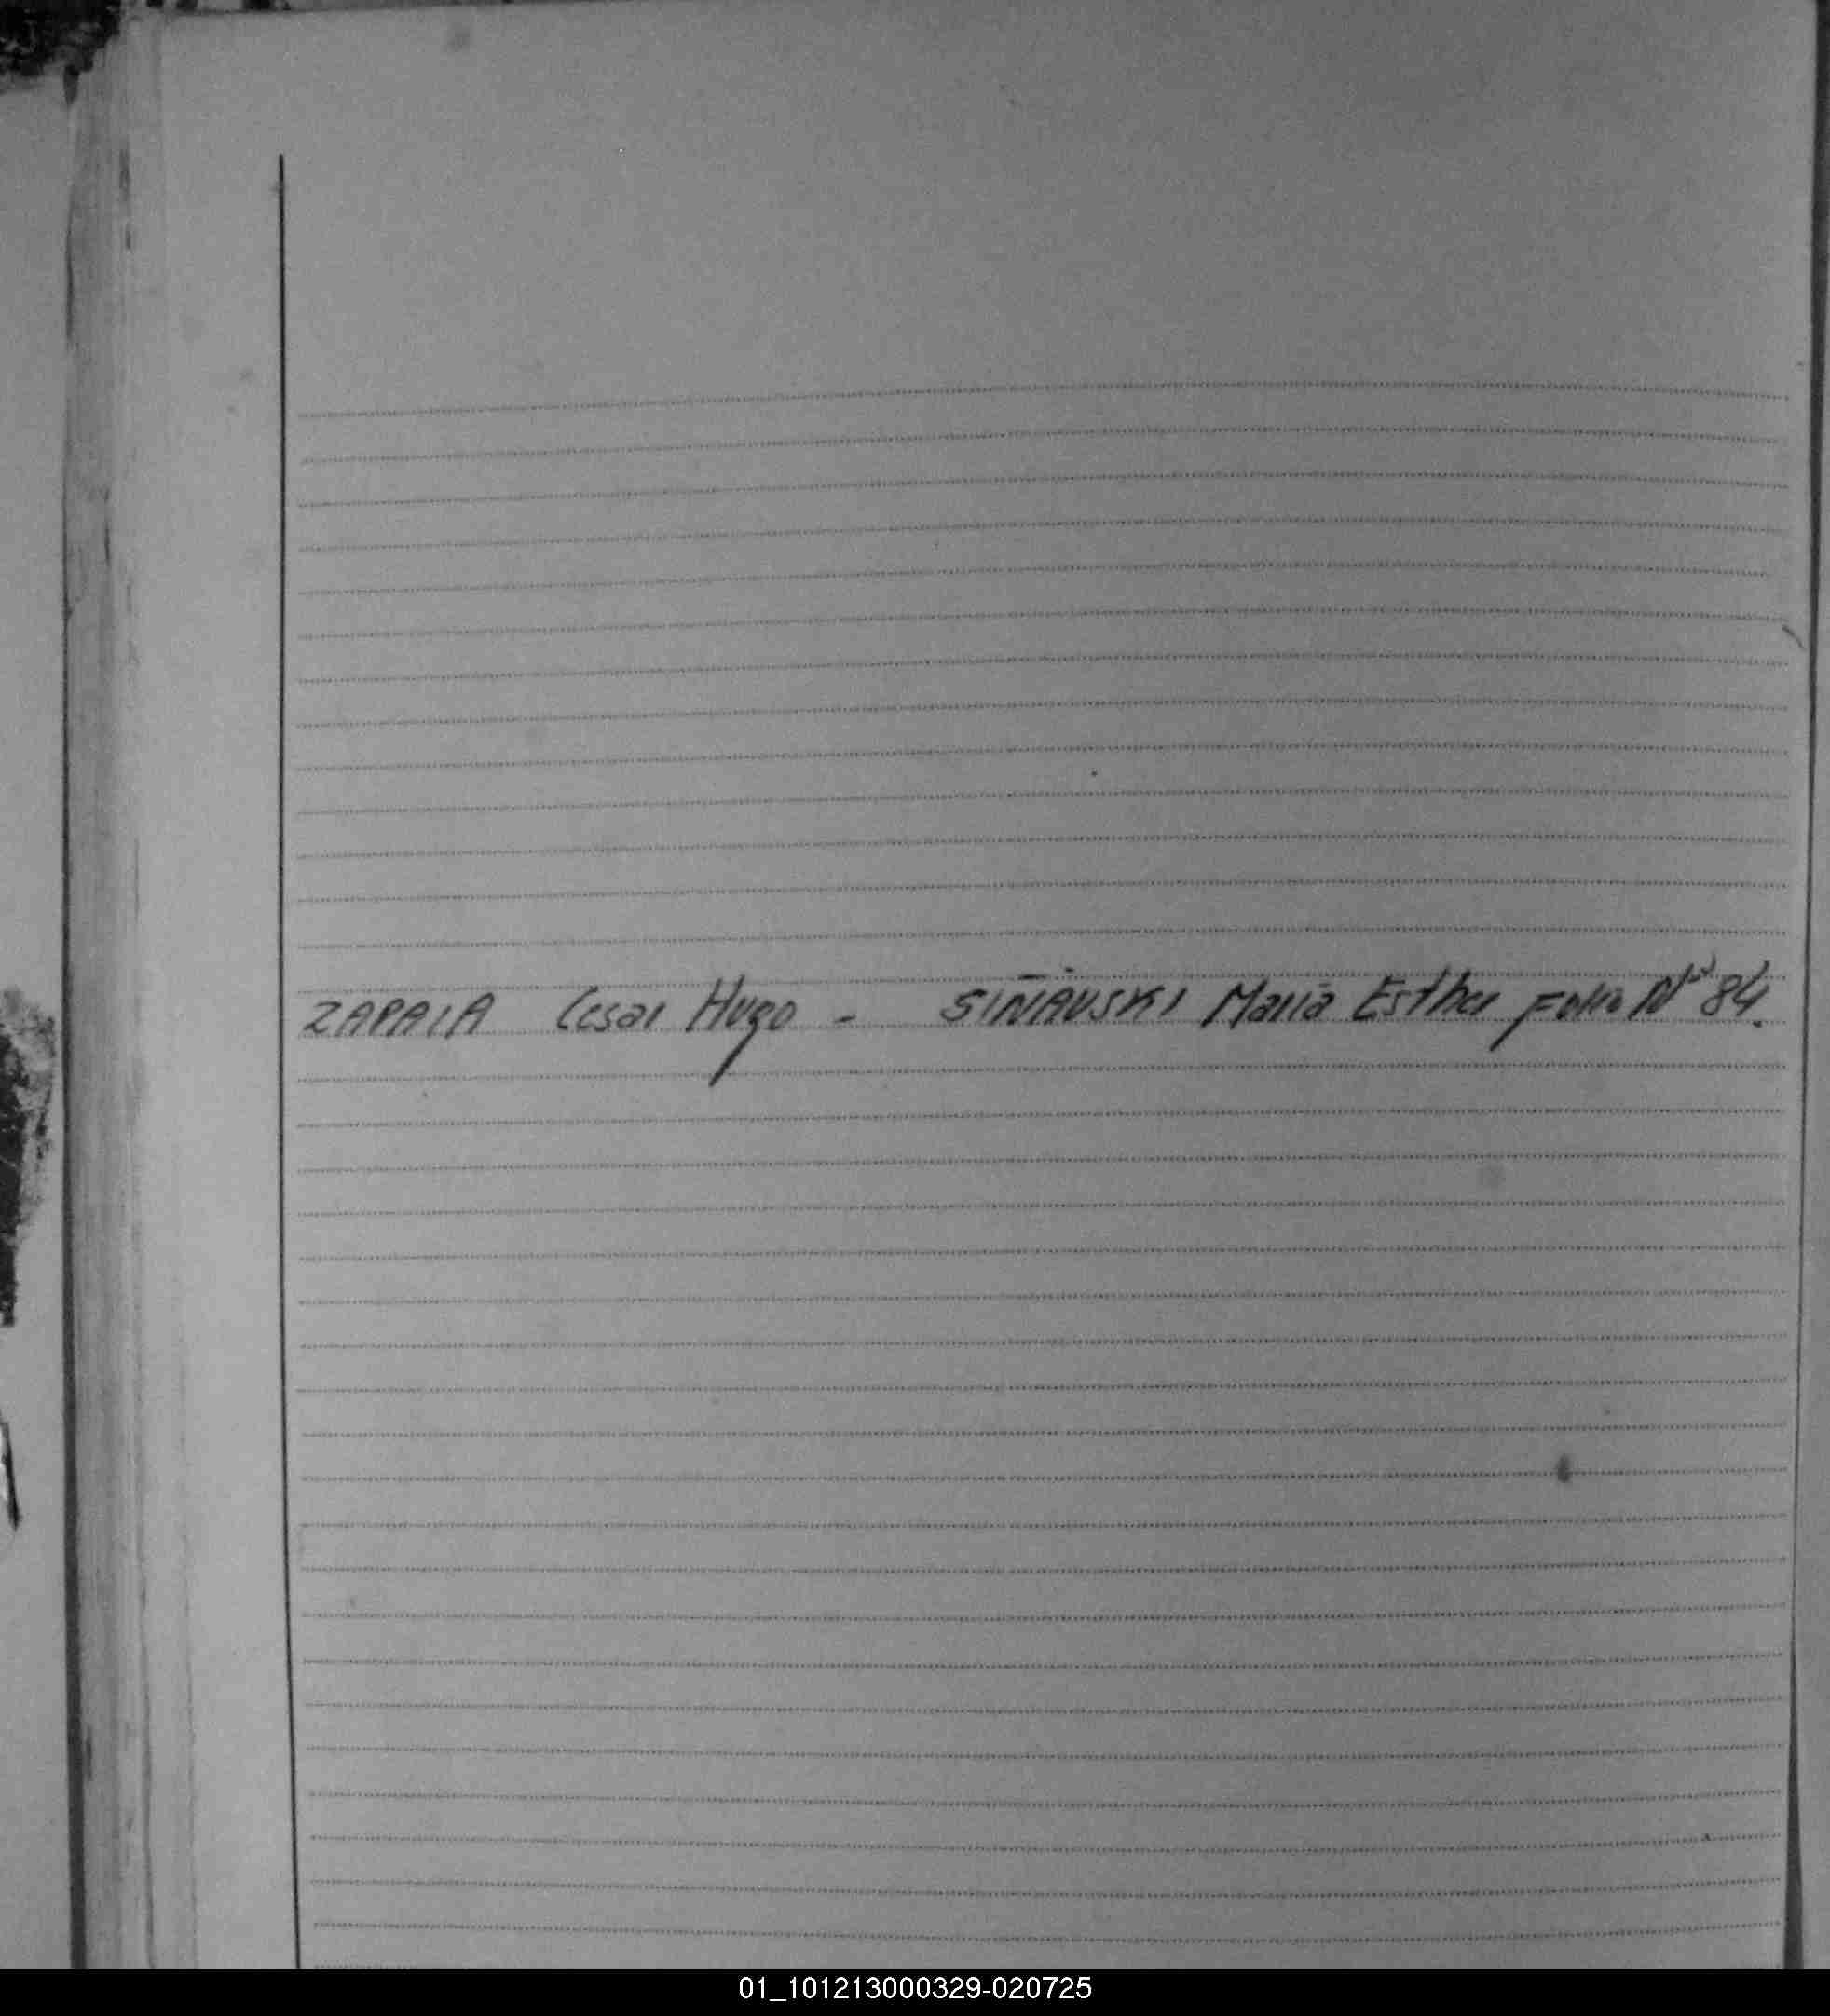 ZAPAIA Cesar Hugo - SIÑAVSKI Maria Esther Folio Nº 84.
01_101213000329-020725